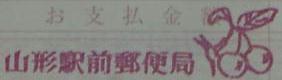 お支払金額
山形駅前郵便局